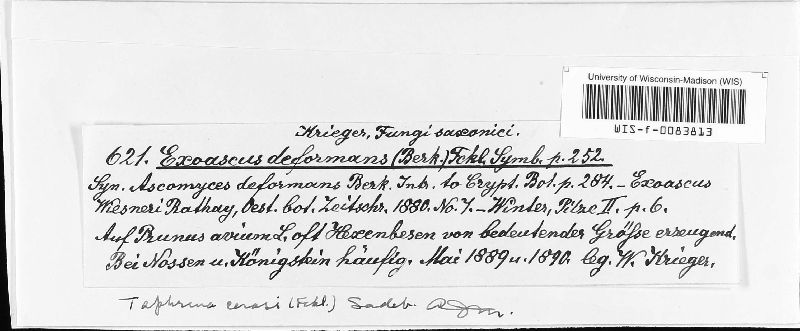 University of Wisconsin-Madison (WIS)
WIS-f-0083813
Krieger, Fungi saxonici.
621. Exoascus deformans (Berk.) Fckl. Symb. p. 252.
Syn. Ascomyces deformans Berk. Intr. to Crypt. Bot. p. 284. – Exoascus
Wiesneri Rathay, Oest. bot. Zeitschr. 1880. No. 7. – Winter, Pilze II. p. 6.
Auf Prunus avium L. oft Hexenbesen von bedeutender Größe erzeugend.
Bei Nossen u. Königstein häufig. Mai 1889 u. 1890. leg. W. Krieger.
Taphrina cerasi (Fckl.) Sadeb.